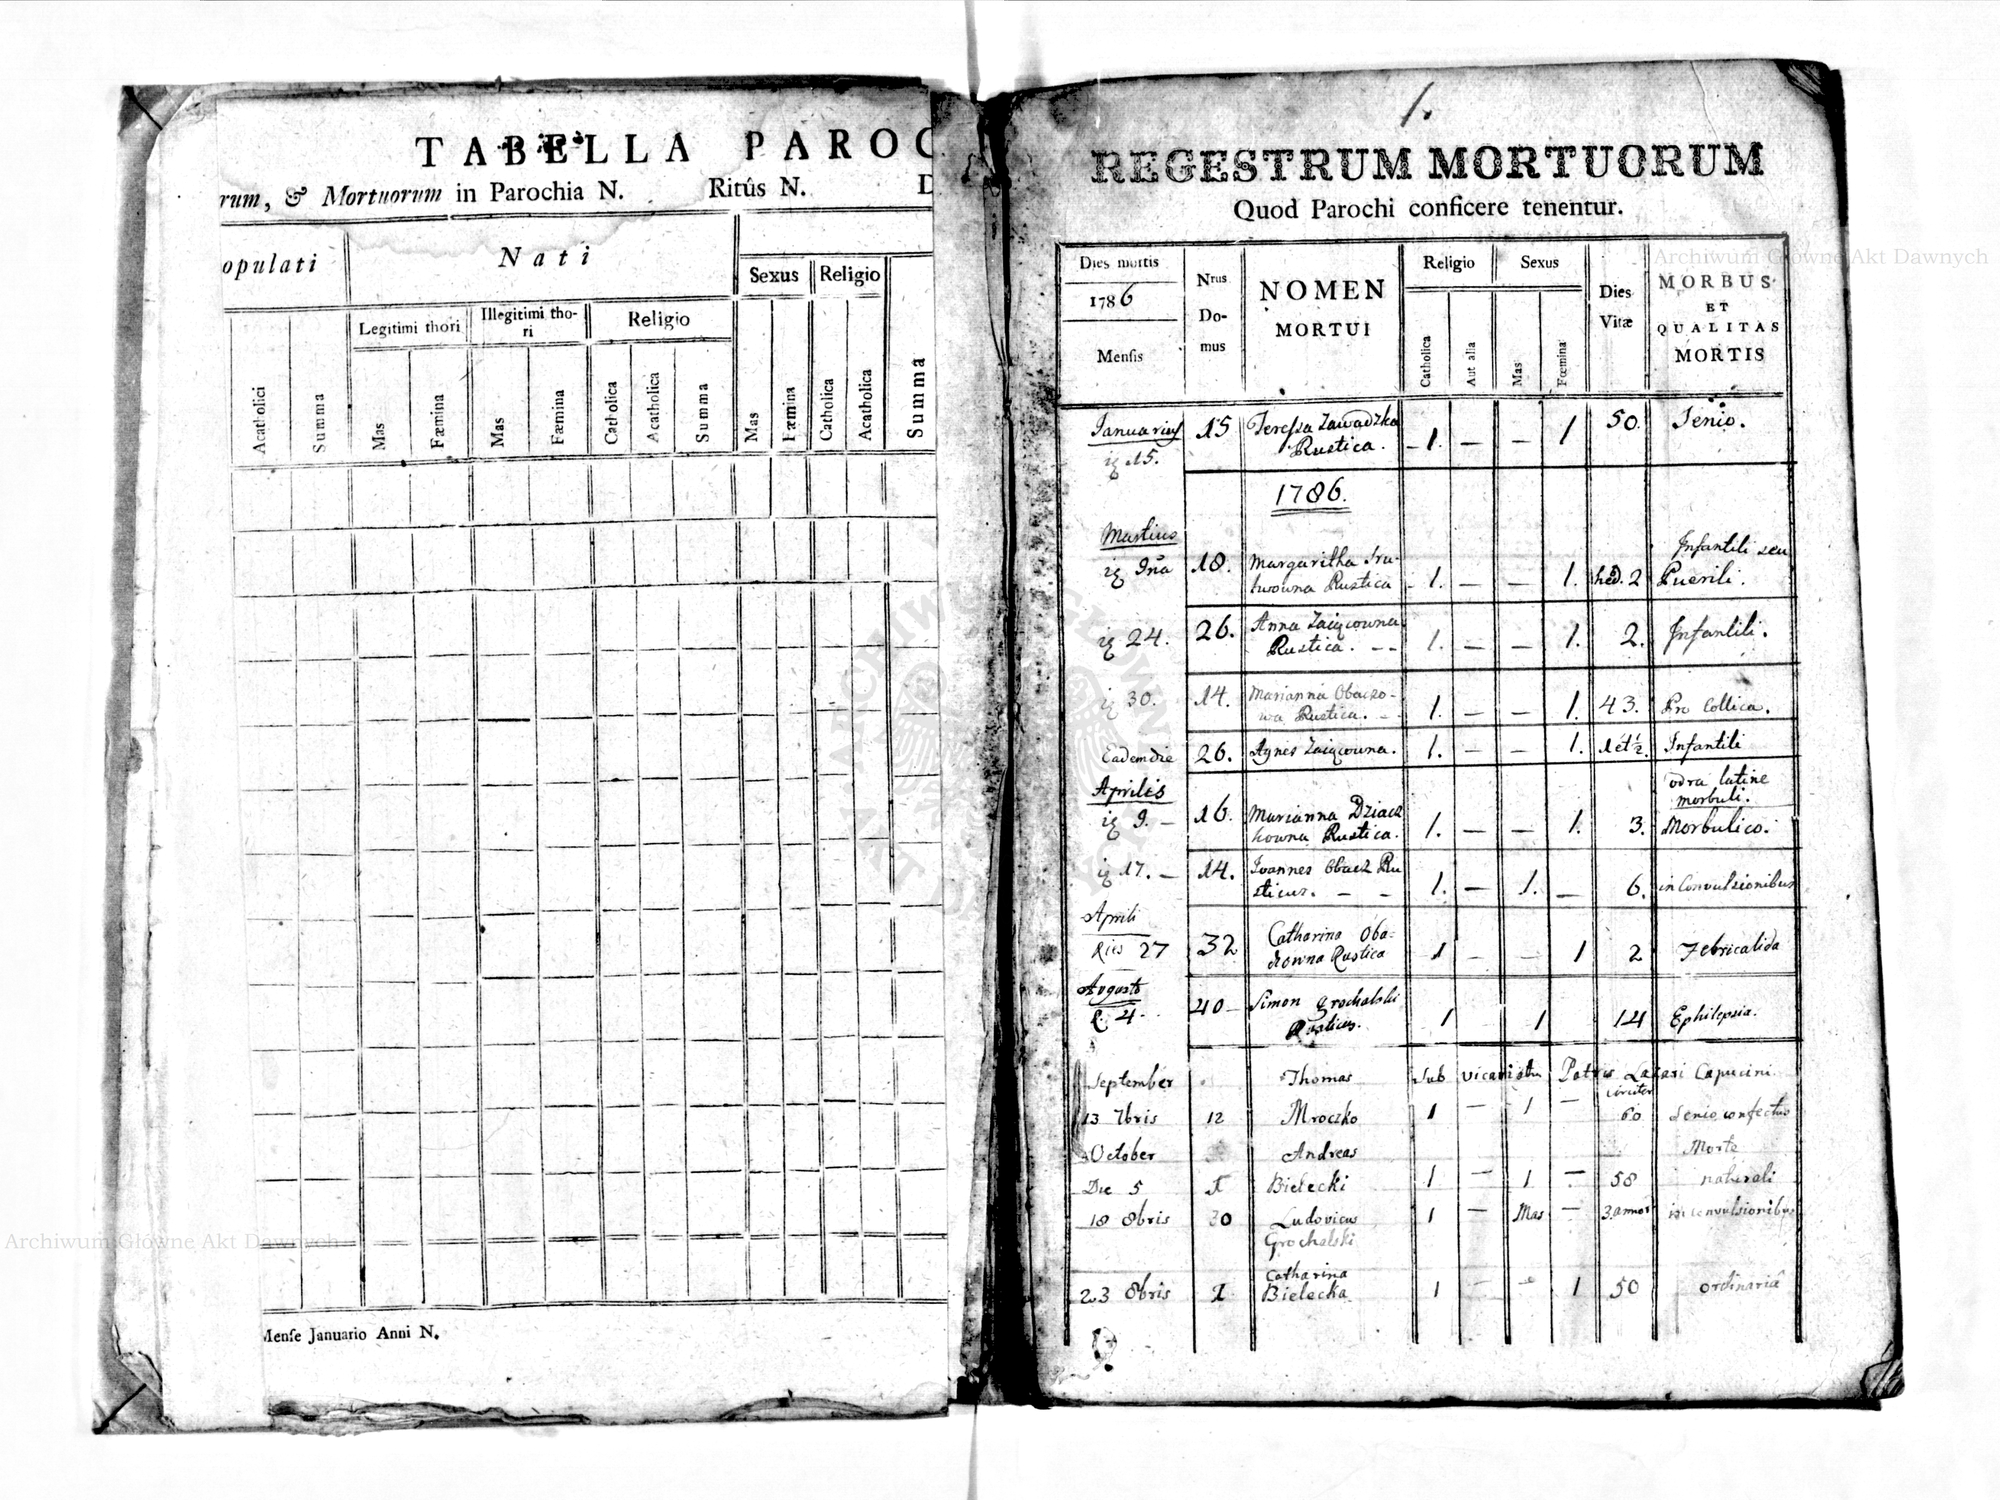 TABELLA PAROC
rum, & Mortuorum in Parochia N. Ritûs N. D
opulati
Nati
Sexus Religio
Legitimi thori Illegitimi tho-
ri
Religio
Acatholici Summa Mas Fæmina Mas Fæmina Catholica Acatholica Summa Mas Fæmina Catholica Acatholica Summa
Mense Januario Anni N.
1.
REGESTRUM MORTUORUM
Quod Parochi conficere tenentur.
Dies mortis
1786
Mensis
Nrus
Do-
mus
NOMEN
MORTUI
Religio Sexus
Catholica Aut alia Mas Fœmina
Dies
Vitæ
MORBUS
ET
QUALITAS
MORTIS
Januarius 15 Teressa Zawadzka 1. — — 1 50. Senio.
15. Rustica.
1786.
Martius
18. Margaritha 1. — — 1. 2 Infantili seu
Rustica Puerili.
24. 26. Anna 1. — — 1. 2. Infantili.
Rustica. - -
30. 14. Marianna Obaczo-
wa Rustica. - 1. — — 1. 43. Pro Collica.
Eademdie 26. Agnes 1. — — 1. 1 et ½. Infantili
Aprilis odra latine
morbuli.
9. - 16. Marianna Dziacz
kowna Rustica. 1. — — 1. 3. Morbulico.
17. — 14. Ioannes Obacz Ru
sticus. - - 1. — 1. — 6. in Convulsionibus
Aprili
27 32 Catharina Oba-
Rustica 1 - - 1 2 Febricalida
Augusto
4. 40 - Simon Grochalski
Rusticus. 1 1 14 Ephilepsia.
September Thomas Sub vicariatu Patris Lazari Capucini
circiter
13 7bris 12 Mroczko 1 — 1 — 60 Senio confectus
October Andreas Morte
Die 5 Bielecki 1 — 1 — 58 naturali
18 8bris 30 Ludovicus 1 - Mas — 3. annor in convulsionibus
Grochalski
Catharina
23 8bris Bielecka 1 — - 1 50 ordinariâ
Archiwum Główne Akt Dawnych
Archiwum Główne Akt Dawnych
ARCHIWUM GŁÓWNE AKT DAWNYCH